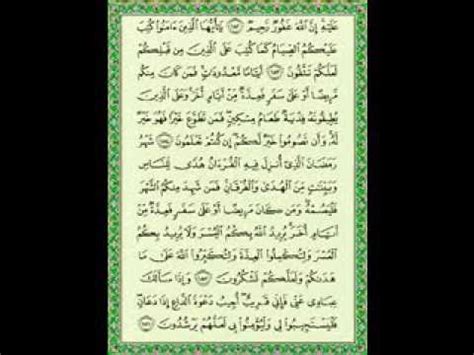 عَلَيْهِ إِنَّ ٱللَّهَ غَفُورٌ رَّحِيمٌ ﴿١٨٢﴾ يَٰٓأَيُّهَا ٱلَّذِينَ ءَامَنُوا۟ كُتِبَ
عَلَيْكُمُ ٱلصِّيَامُ كَمَا كُتِبَ عَلَى ٱلَّذِينَ مِن قَبْلِكُمْ
لَعَلَّكُمْ تَتَّقُونَ ﴿١٨٣﴾ أَيَّامًا مَّعْدُودَٰتٍ فَمَن كَانَ مِنكُم
مَّرِيضًا أَوْ عَلَىٰ سَفَرٍ فَعِدَّةٌ مِّنْ أَيَّامٍ أُخَرَ وَعَلَى ٱلَّذِينَ
يُطِيقُونَهُۥ فِدْيَةٌ طَعَامُ مِسْكِينٍ فَمَن تَطَوَّعَ خَيْرًا فَهُوَ خَيْرٌ
لَّهُۥ وَأَن تَصُومُوا۟ خَيْرٌ لَّكُمْ إِن كُنتُمْ تَعْلَمُونَ ﴿١٨٤﴾ شَهْرُ
رَمَضَانَ ٱلَّذِىٓ أُنزِلَ فِيهِ ٱلْقُرْءَانُ هُدًى لِّلنَّاسِ
وَبَيِّنَٰتٍ مِّنَ ٱلْهُدَىٰ وَٱلْفُرْقَانِ فَمَن شَهِدَ مِنكُمُ ٱلشَّهْرَ
فَلْيَصُمْهُ وَمَن كَانَ مَرِيضًا أَوْ عَلَىٰ سَفَرٍ فَعِدَّةٌ مِّنْ
أَيَّامٍ أُخَرَ يُرِيدُ ٱللَّهُ بِكُمُ ٱلْيُسْرَ وَلَا يُرِيدُ بِكُمُ
ٱلْعُسْرَ وَلِتُكْمِلُوا۟ ٱلْعِدَّةَ وَلِتُكَبِّرُوا۟ ٱللَّهَ عَلَىٰ مَا
هَدَىٰكُمْ وَلَعَلَّكُمْ تَشْكُرُونَ ﴿١٨٥﴾ وَإِذَا سَأَلَكَ
عِبَادِى عَنِّى فَإِنِّى قَرِيبٌ أُجِيبُ دَعْوَةَ ٱلدَّاعِ إِذَا دَعَانِ
فَلْيَسْتَجِيبُوا۟ لِى وَلْيُؤْمِنُوا۟ بِى لَعَلَّهُمْ يَرْشُدُونَ ﴿١٨٦﴾